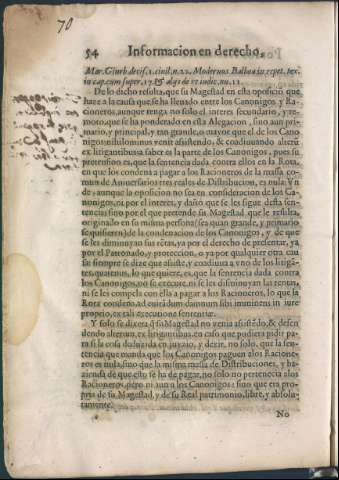 70
54 Informacion en derecho,
Mar. Giurb decis. 1. civil. n. 22. Modernus Balboa in repet. tex.
in cap. cum super, 17. & alys de re iudic. nu. 11.
De lo dicho resulta, que su Magestad en esta oposicion que
haze a la causa que se ha lleuado entre los Canonigos y Ra-
cioneros, aunque tenga no solo el interes secundario, y re-
moto, que se ha ponderado en esta Alegacion, sino aun pri-
mario, y principal, y tan grande, o mayor que el de los Cano
nigos: nihilominus venit assistendo, & coadiuuando alterũ
ex litigantibus a saber is a la parte de los Canonigos, pues su
pretension es, que la sentencia dada contra ellos en la Rota,
en que los condena a pagar a los Racioneros de la massa co-
mun de Aniuersarios tres reales de Distribucion, es nula: Vn
de, aunque la oposicion no sea en consideracion de los Ca-
nonigos, ni por el interes, y daño que se les sigue desta sen-
tencia: sino por el que pretende su Magestad que le resulta,
originallo en su misma persona (sea quan grande, y primario
se quisieren) de la condenacion de los Canonigos, y de que
se les diminuyan sus rẽtas, ya por el derecho de presentar, ya
por el Patronado, y proteccion, o ya por qualquier otra cau
sa: siempre se dize que assiste, y coadiuua a vno de los litigã-
tes, quatenus, lo que quiere, es, que la sentencia dada contra
los Canonigos, no se execute, ni se les disminuyan las rentas,
ni se les compela con ella a pagar a los Racioneros, lo que la
Rota condenò, ad euitãdum damnum sibi imminens in iure
proprio, ex tali executione sententiæ.
Y solo se dixera q̃ su Magestad no venia assistẽdo, & defen
dendo alterum ex litigantibus, en caso que pudiera pidir pa-
ra si la cosa deduzida en juyzio, y dezir, no solo, que la sen-
tencia que manda que los Canonigos paguen a los Racione-
ros es nula, sino que la misma massa de Distribuciones, y ha-
zienda de que esto se ha de pagar, no solo no pertenecia a los
Racioneros, pero ni aun a los Canonigos: sino que era pro-
pria de su Magestad, y de su Real patrimonio, libre, y absolu-
tamente.
No